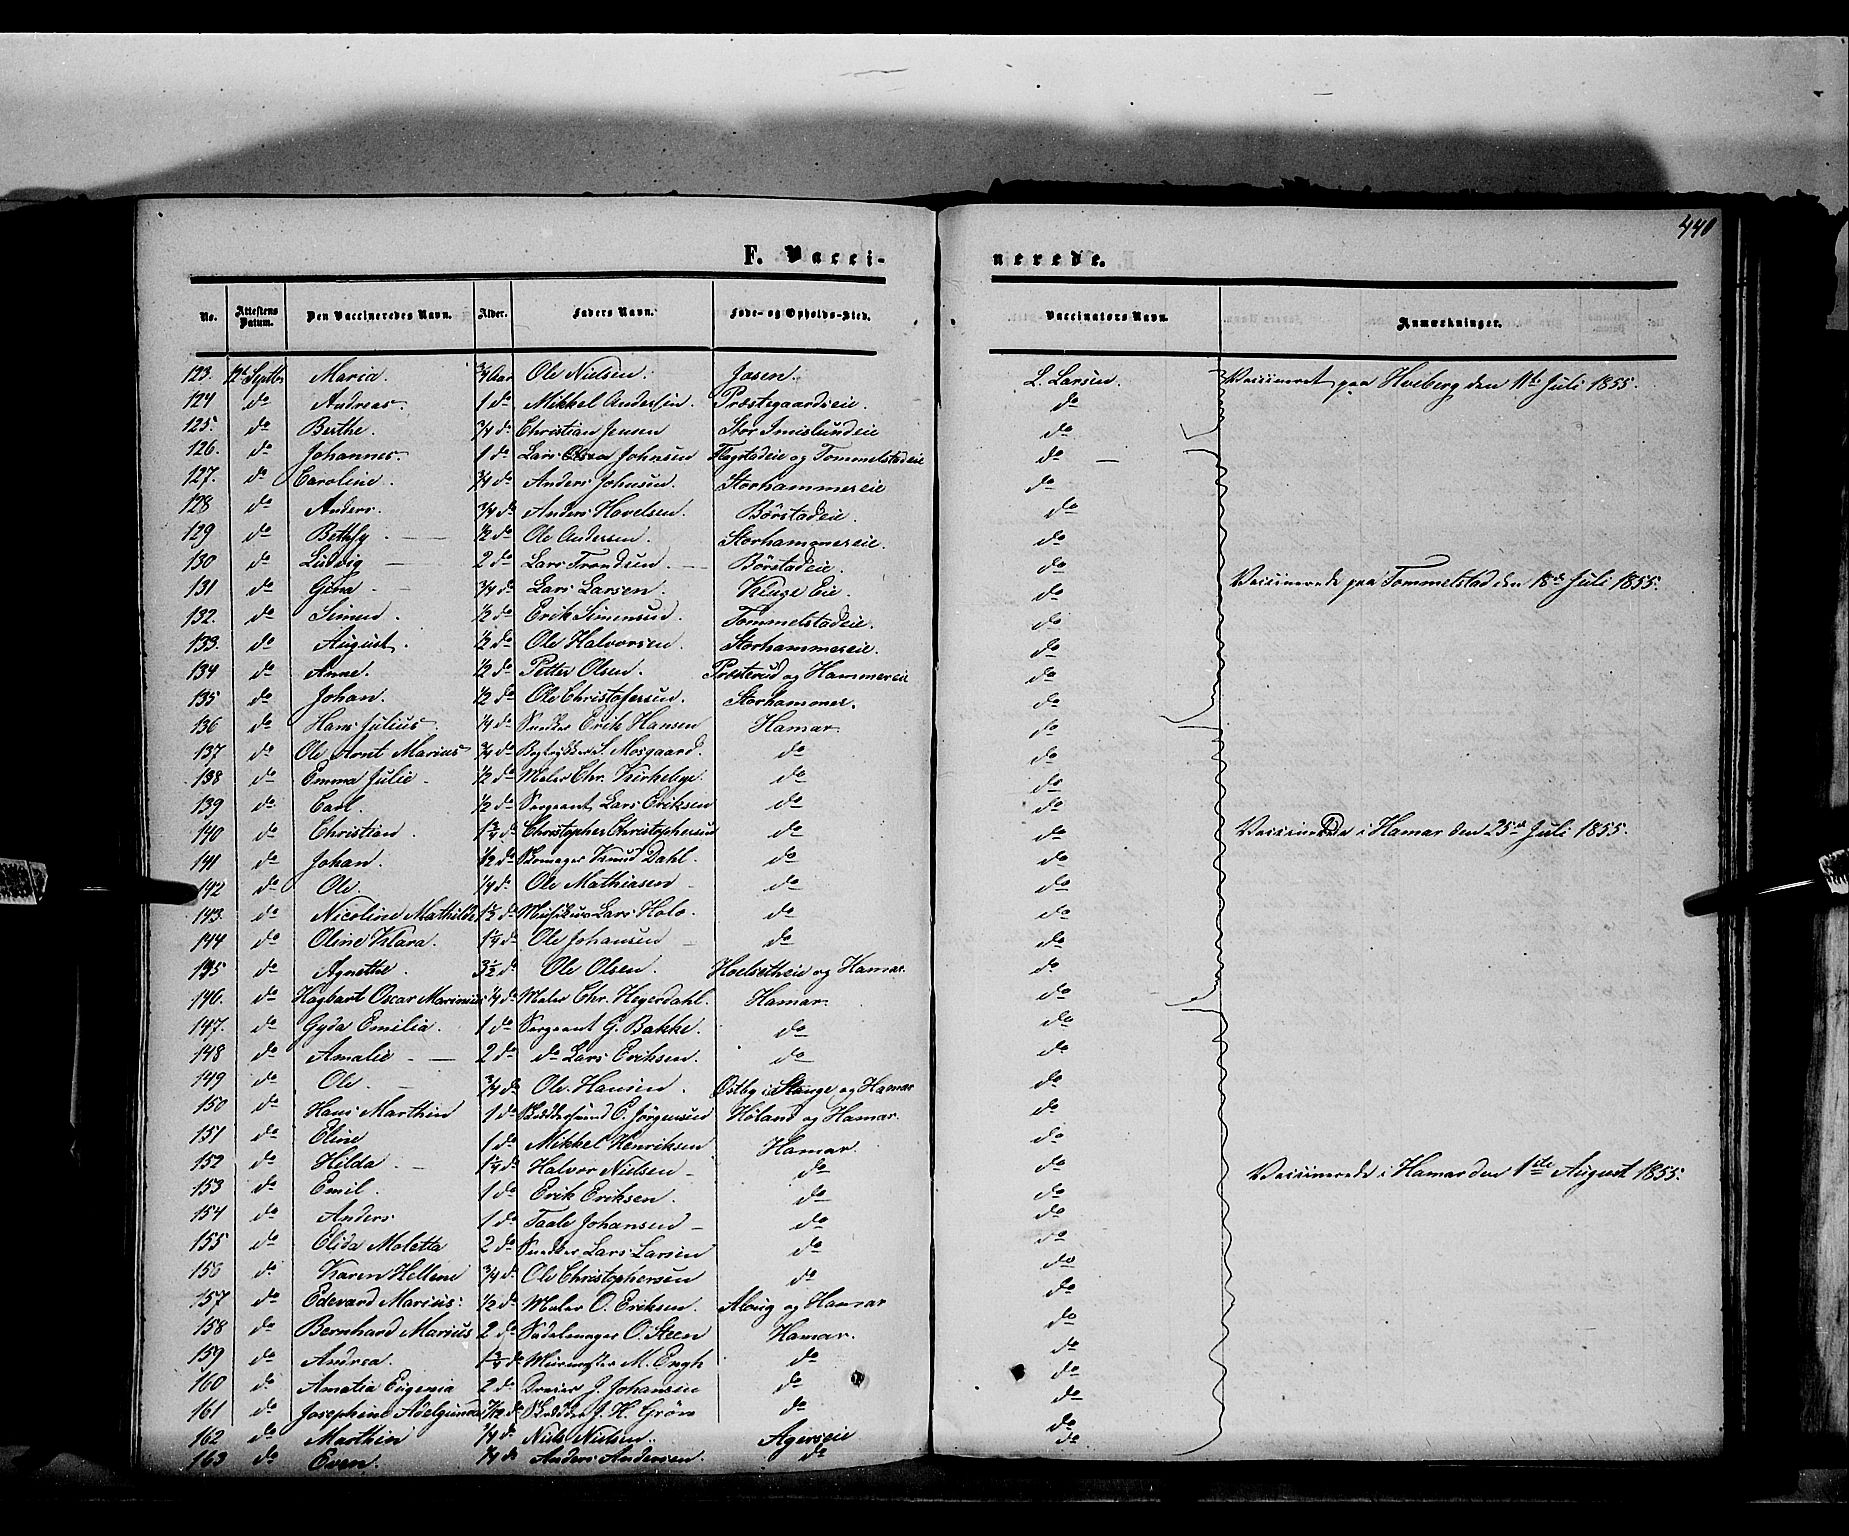 440
F. Vacci- nerede.
No. Attestens Datum. Den Vaccineredes Navn. Alder. Faders Navn. Føde- og Opholds-Sted. Vaccinators Navn. Anmærkninger.
123. 12te Septbr Maria. 3/4 Aar Ole Nielsen. Josen. L. Larsen. Vaccineret paa Hviberg den 11te Juli 1855.
124 do Andreas. 1 do Mikkel Andersen. Præstegaardseie. do
125. do Berthe. 3/4 do Christian Jensen Stor Imislundeie do
126. do Johannes. 1 do Lars Johnsen Flagstadeie og Tommelstadeie do
127. do Caroline. 3/4 do Anders Johnsen. Storhammereie do
128 do Anders. 3/4 do Anders Hovelsen. Börstadeie. do
129 do Bethsy 1/2 do Ole Andersen. Storhammereie. do
130 do Ludvig 2 do Lars Trondsen. Börstadeie. do
131 do Gina 3/4 do Lars Larsen. Kluge Eie. do Vaccinerede paa Tommelstad den 18de Juli 1855.
132. do Simen 1/2 do Erik Simensen. Tommelstadeie. do
133. do August. 1/2 do Ole Halvorsen. Storhammereie. do
134 do Anne. 1/2 do Petter Olsen. Præsterud og Hammereie do
135 do Johan. 1/2 do Ole Christofersen. Storhammer. do
136 do Hans Julius. 1/4 do Snedker Erik Hansen Hamar. do
137 do Ole Arnt Marius 3/4 do Bogtrykker S. Mosgaard. do do
138 do Emma Julie 1/2 do Maler Chr. Kirkebye. do do
139 do Carl. 1/2 do Sergeant Lars Eriksen do do
140 do Christian 1 3/4 do Christopher Christophersen do do Vaccinerede i Hamar den 25de Juli 1855.
141 do Johan. 1/2 do Skomager Knud Dahl. do do
142 do Ole 1/4 do Ole Mathiasen do do
143. do Nicoline Mathilde do Musikus Lars Holo. do do
144 do Oline Klara. 1 1/4 do Ole Johansen do do
145 do Agnethe. 3 1/2 do Ole Olsen. Hoelsetheie og Hamar. do
146. do Hagbart Oscar Marinius 1/4 do Maler Chr. Hegerdahl. Hamar. do
147. do Gyda Emilia. 1 do Sergeant G. Bakke. do do
148 do Amalie 2 do do Lars Eriksen. do do
149 do Ole 3/4 do Ole Hansen. Ostby i Stange og Hamar do
150 do Hans Marthin 1 do E. Jörgensen Höland og Hamar. do
151 do Eline 1 do Mikkel Henriksen Hamar. do
152 do Hilda. 1 1/4 do Halvor Nielsen do do Vaccinerede i Hamar den 1ste August 1855.
153 do Emil. 1 do Erik Eriksen. do do
154 do Anders 1 do Taale Johansen do do
155 do Elida Moletta 2 do Snedker Lars Larsen do do
156 do Karen Hellene 3/4 do Ole Christophersen do do
157 do Edevard Marius. 1/2 do Maler O. Eriksen. og Hamar do
158 do Bernhard Marius 2 do Sadelmager O. Steen Hamar. do
159 do Andrea. 1 3/4 do Muurmester M. Engh do do
160 do Amalia Eugenia 2 do Dreier J. Johansen do do
161 do Josephine Adelgunda 7/12 do Skrædder J. H. Gröm do do
162 do Marthin 3/4 do Niels Nielsen. Agerseie do
163 do Even. 3/4 do Anders Andersen. do do